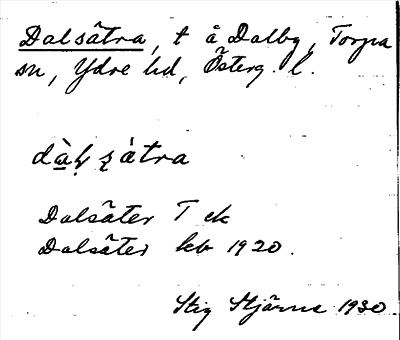 Dalsätra, t å Dalby, Torpa
sn, Ydre hd, Österg. l.
dàḷ sàtra
Dalsäter T ek
Dalsäter kb 1920.
Stig Stjärne 1930.